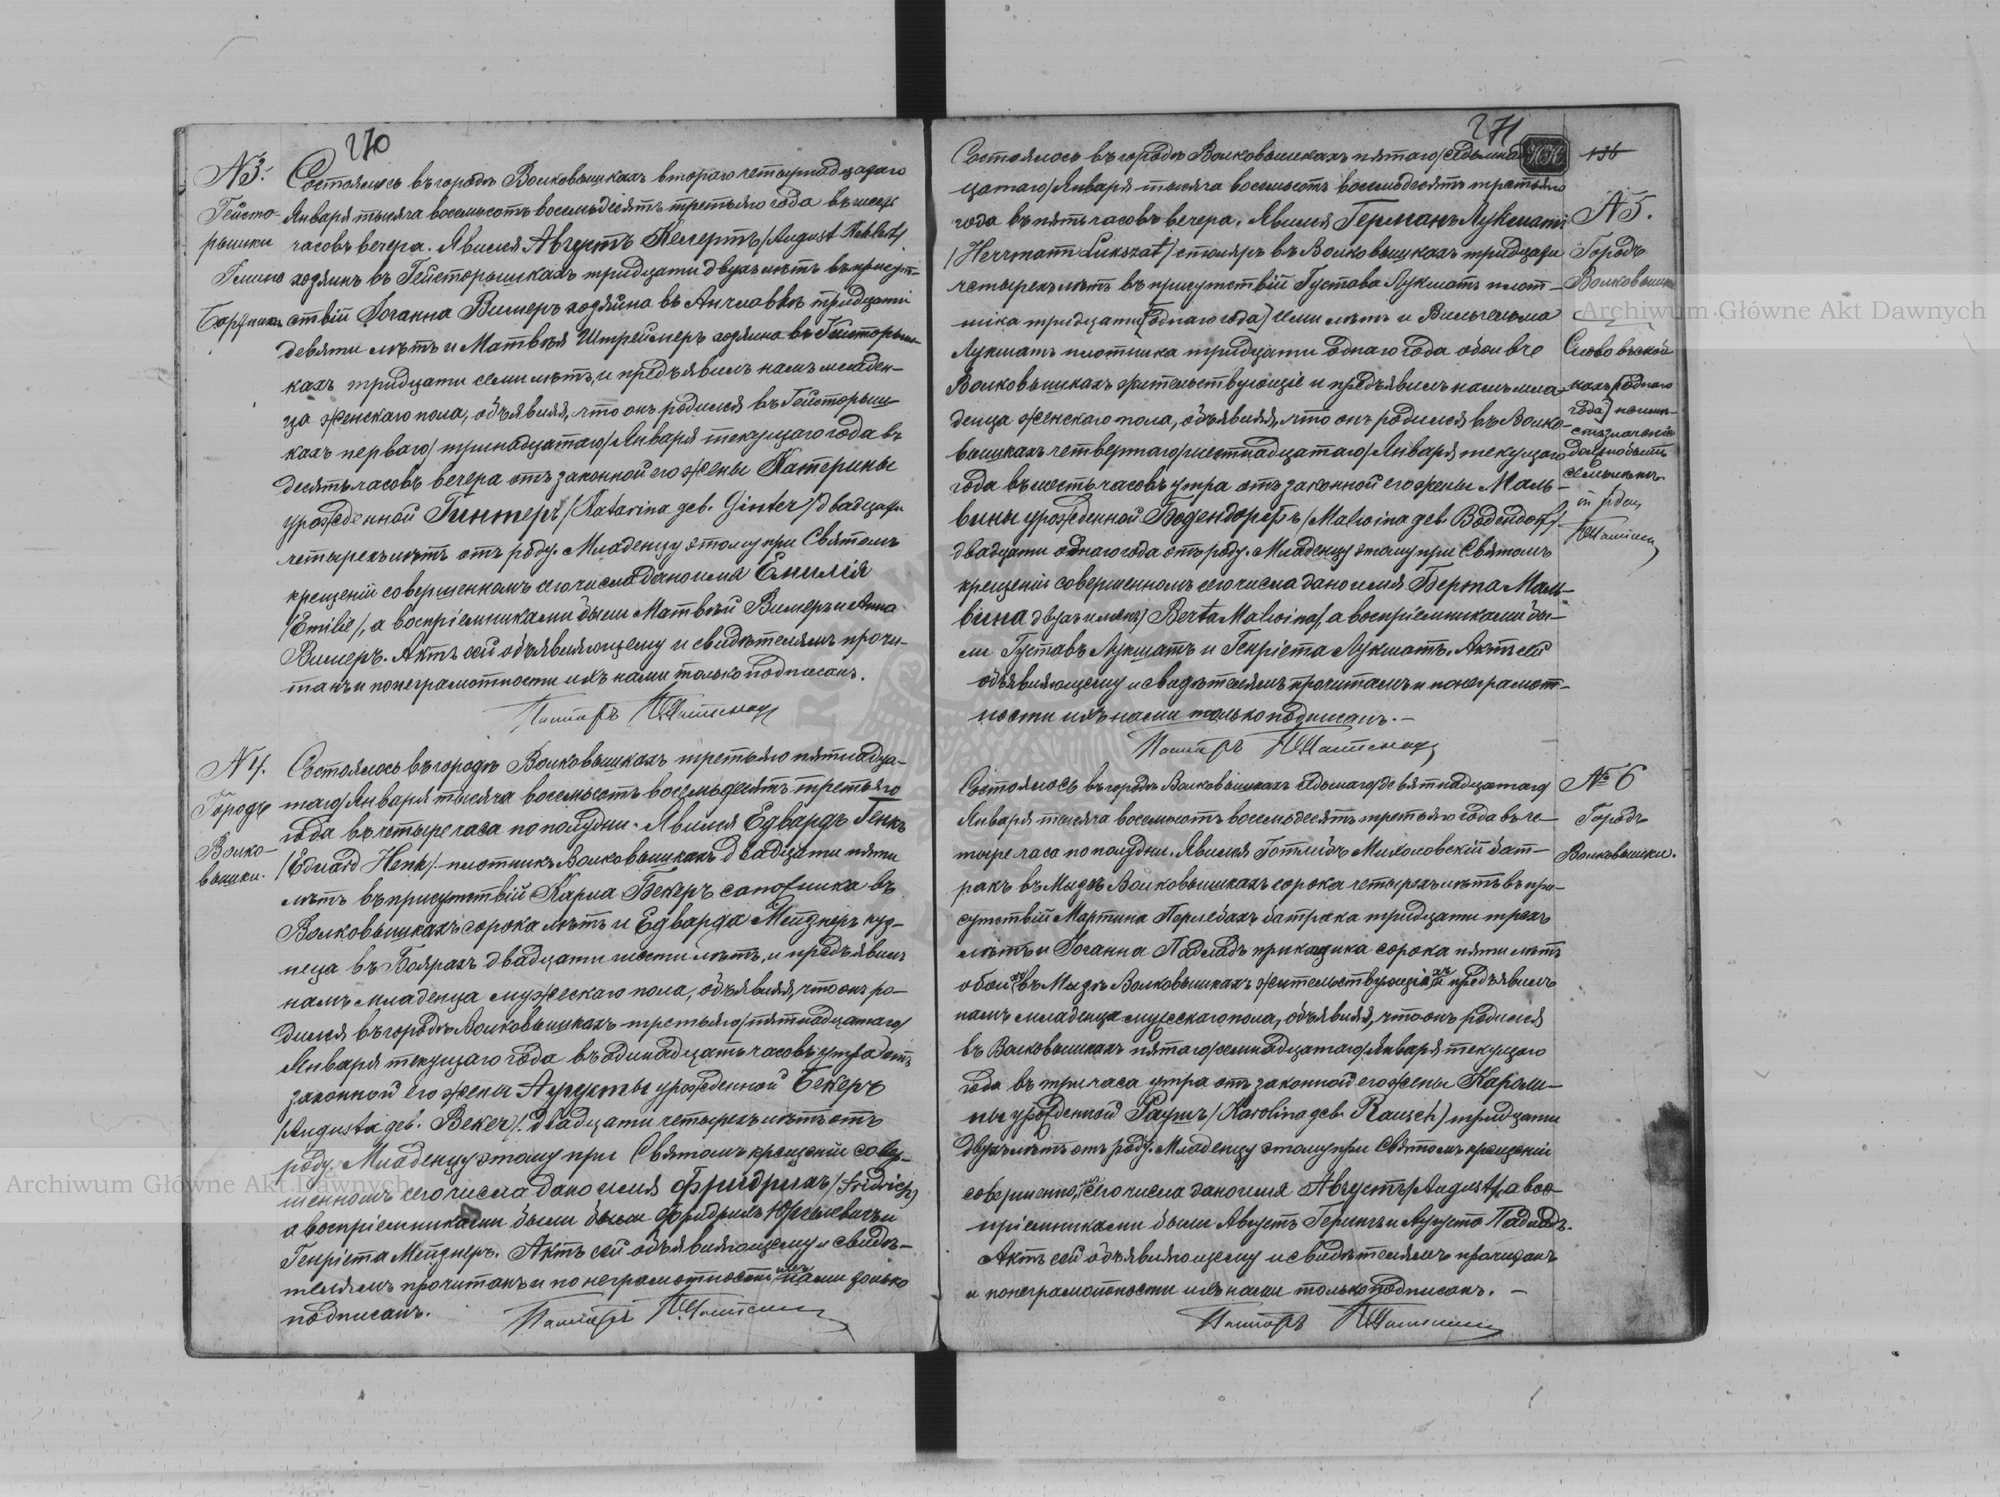 270
№ 3.
Гейсто-
рышки
Гмина
Состоялось въ городѣ Волковышкахъ втораго четырнадцатаго
Января тысяча восемьсотъ восемьдесятъ третьяго года въ шесть
часовъ вечера. Явился Августъ Келертъ /August Kehlert/
хозяинъ въ Гейсторышкахъ тридцати двухъ лѣтъ въ присут-
ствіи Іоганна Вимеръ хозяина въ Анчлавкѣ тридцати
девяти лѣтъ и Матвѣя Штреймеръ хозяина въ Гейсторыш-
кахъ тридцати семи лѣтъ, и предъявилъ намъ младен-
ца женскаго пола, объявляя, что онъ родился въ Гейсторыш-
кахъ перваго /тринадцатаго/ Января текущаго года въ
десять часовъ вечера отъ законной его жены Катерины
урожденной Гинтеръ /Katarina дев. Ginter/ двадцати
четырехъ лѣтъ отъ роду. Младенцу этому при Святомъ
крещеніи совершенномъ сего числа дано имя Емилія
/Emilie/, а воспріемниками были Матвѣй Вимеръ и Анна
Вимеръ. Актъ сей объявляющему и свидѣтелямъ прочи-
танъ и по неграмотности ихъ нами только подписанъ.
Пасторъ
№ 4.
Городъ
Волко-
вышки.
Состоялось въ городѣ Волковышкахъ третьяго пятнадца-
таго/Января тысяча восемьсотъ восемьдесятъ третьяго
года въ четыре часа по полудни. Явился Едвардъ Генкъ
/Eduard Henk/ плотникъ Волковышкахъ двадцати пяти
лѣтъ въ присутствіи Карла Бекеръ сапожника въ
Волковышкахъ сорока лѣтъ и Едварда Мейднеръ куз-
неца въ Боярахъ двадцати шести лѣтъ, и предъявилъ
намъ младенца мужескаго пола, объявляя, что онъ ро-
дился въ городѣ Волковышкахъ третьяго/пятнадцатаго/
Января текущаго года въ одинадцать часовъ утра отъ
законной его жены Августы урожденной Бекеръ
/Augusta дев. Beker/ двадцати четырехъ лѣтъ отъ
роду. Младенцу этому при Святомъ крещеніи совер-
шенномъ сего числа дано имя Фридрихъ /Fridrich/
а воспріемниками были были Фридрихъ и
Генріета Мейднеръ. Актъ сей объявляющему и свидѣ-
телямъ прочитанъ и по неграмотности ихъ нами только
подписанъ.
Пасторъ
271
НК
136
Состоялось въ городѣ Волковышкахъ пятаго/семнад-
цатаго/Января тысяча восемьсотъ восемьдесятъ третьяго
года въ пять часовъ вечера. Явился Германъ Лукшатъ
/Herrmann Lukszat/ столяръ въ Волковышкахъ тридцати
четырехъ лѣтъ въ присутствіи Густава Лукшатъ плот-
ника тридцати [однаго года] семи лѣтъ и Вильгельма
Лукшатъ плотника тридцати однаго года обои въ
Волковышкахъ жительствующіе и предъявилъ намъ мла-
денца женскаго пола, объявляя, что онъ родился въ Волко-
вышкахъ четвертаго/шестнадцатаго/Января текущаго
года въ шесть часовъ утра отъ законной его жены Маль-
вины урожденной Бодендорфъ /Malwina дев. Bodendorf/
двадцати однаго года отъ роду. Младенцу этому при Святомъ
крещеніи совершенномъ сего числа дано имя Берта Маль-
вина двухъ именъ/ Berta Malwina/ а воспріемниками бы-
ли Густавъ Лукшатъ и Генріета Лукшатъ. Актъ сей
объявляющему и свидѣтелямъ прочитанъ и по неграмот-
ности ихъ нами только подписанъ. —
Пасторъ
№ 5.
Городъ
Волковышки
Слово въ скоб-
кахъ [однаго
года]
должно быть
Состоялось въ городѣ Волковышкахъ седьмаго/девятнадцатаго
Января тысяча восемьсотъ восемьдесятъ третьяго года въ че-
тыре часа по полудни. Явился Готлибъ Михоловскій бат-
ракъ въ Мыдѣ Волковышкахъ сорока четырехъ лѣтъ въ при-
сутствіи Мартина Перлебахъ батрака тридцати трехъ
лѣтъ и Іоганна Падладъ прикащика сорока пяти лѣтъ
обои въ Мыдѣ Волковышкахъ жительствующихъ и предъявилъ
намъ младенца мужескаго пола, объявляя, что онъ родился
въ Волковышкахъ пятаго/семнадцатаго/Января текущаго
года въ три часа утра отъ законной его жены Кароли-
ны урожденной Раушъ /Karolina дев. Rausch/ тридцати
двухъ лѣтъ отъ роду. Младенцу этому при Святомъ крещеніи
совершенномъ сего числа дано имя Августъ/August/, а вос-
пріемниками были Августъ Герингъ и Августа Падладъ.
Актъ сей объявляющему и свидѣтелямъ прочитанъ
и по неграмотности ихъ нами только подписанъ. —
Пасторъ
№ 6
Городъ
Волковышки.
Archiwum Główne Akt Dawnych
Archiwum Główne Akt Dawnych